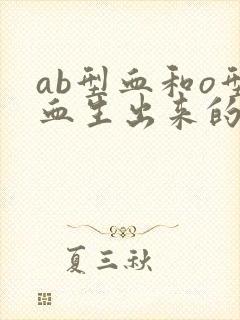 ab型血和o型
血生出来的
夏三秋